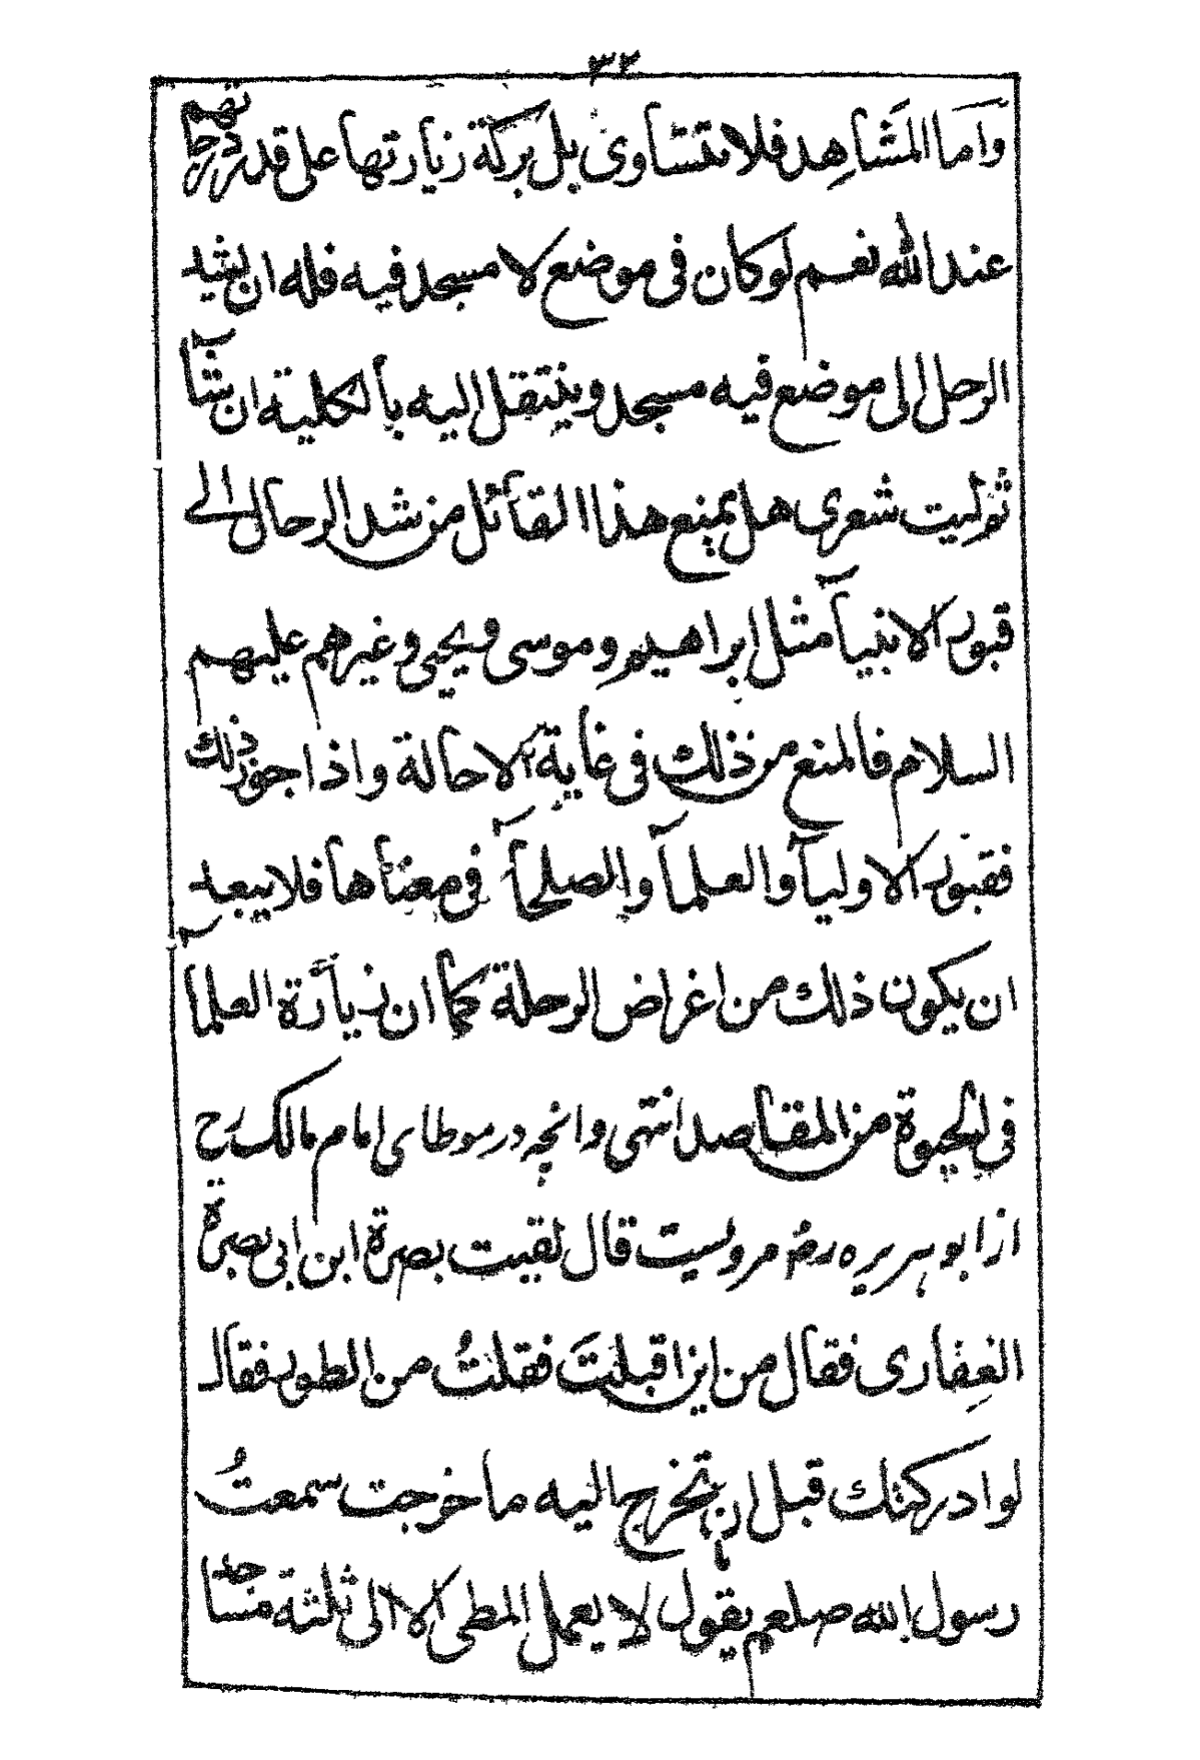 ٣٢
وَاَما المَشَاهِد فلا تتساوى بل بركة زيارتها على قدر درجاتهم
عند الله نعم لو كان فى موضع لا مسجد فيه فله ان يشد
الرحل الى موضع فيه مسجد وينتقل اليه بالكلية ان شآ
ثم ليت شعرى هل يمنع هذا القائل من شد الرحال الى
قبور الانبيآ مثل ابراهيم وموسى ويحيى وغيرهم عليهم
السلام فالمنع من ذلك فى غاية الاحالة واذا جوز ذلك
فقبور الاوليآ والعلمآ والصلحآ فى معناها فلا يبعد
ان يكون ذلك من اغراض الرحلة كما ان زيارة العلمآ
فى الحيوة من المقاصد انتهى وانچه در موطاى امام مالك رح
از ابو هريره رضـ مرويست قال لقيت بصرة ابن ابى بصرة
الغِفارى فقال من اين اقبلتَ فقلتُ من الطور فقال
لو ادركتك قبل ان تخرج اليه ما خرجت سمعتُ
رسول الله صلعم يقول لا يعمل المطى الا الى ثلثة مساجد